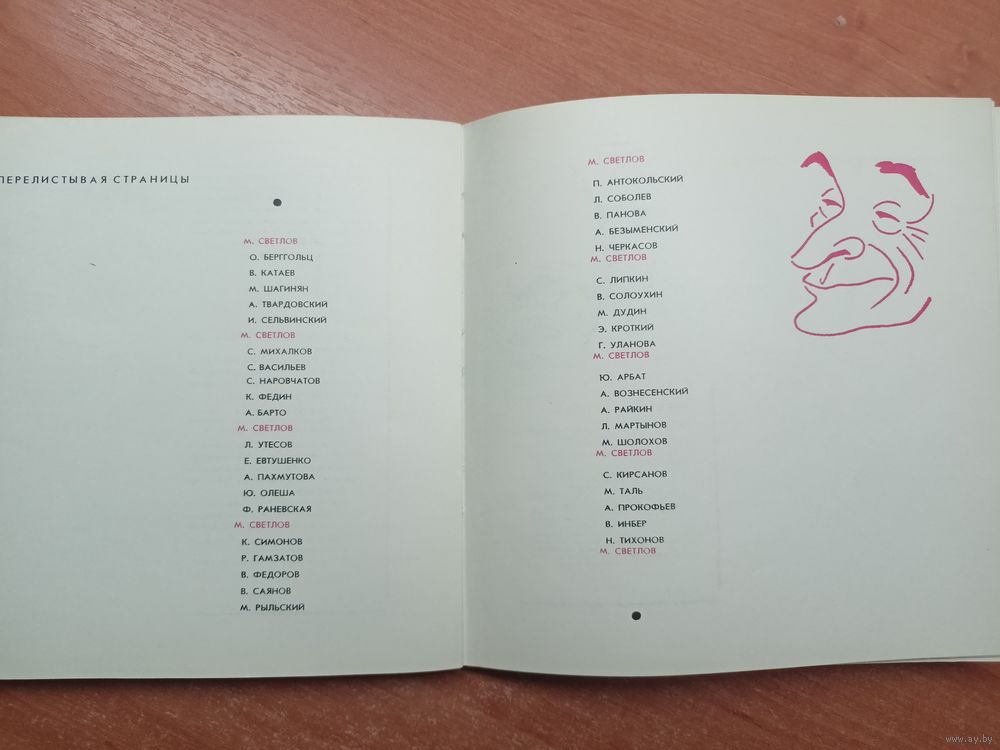 ПЕРЕЛИСТЫВАЯ СТРАНИЦЫ
М. СВЕТЛОВ
О. БЕРГГОЛЬЦ
В. КАТАЕВ
М. ШАГИНЯН
А. ТВАРДОВСКИЙ
И. СЕЛЬВИНСКИЙ
М. СВЕТЛОВ
С. МИХАЛКОВ
С. ВАСИЛЬЕВ
С. НАРОВЧАТОВ
К. ФЕДИН
А. БАРТО
М. СВЕТЛОВ
Л. УТЕСОВ
Е. ЕВТУШЕНКО
А. ПАХМУТОВА
Ю. ОЛЕША
Ф. РАНЕВСКАЯ
М. СВЕТЛОВ
К. СИМОНОВ
Р. ГАМЗАТОВ
В. ФЕДОРОВ
В. САЯНОВ
М. РЫЛЬСКИЙ
М. СВЕТЛОВ
П. АНТОКОЛЬСКИЙ
Л. СОБОЛЕВ
В. ПАНОВА
А. БЕЗЫМЕНСКИЙ
Н. ЧЕРКАСОВ
М. СВЕТЛОВ
С. ЛИПКИН
В. СОЛОУХИН
М. ДУДИН
Э. КРОТКИЙ
Г. УЛАНОВА
М. СВЕТЛОВ
Ю. АРБАТ
А. ВОЗНЕСЕНСКИЙ
А. РАЙКИН
Л. МАРТЫНОВ
М. ШОЛОХОВ
М. СВЕТЛОВ
С. КИРСАНОВ
М. ТАЛЬ
А. ПРОКОФЬЕВ
В. ИНБЕР
Н. ТИХОНОВ
М. СВЕТЛОВ
www.ay.by